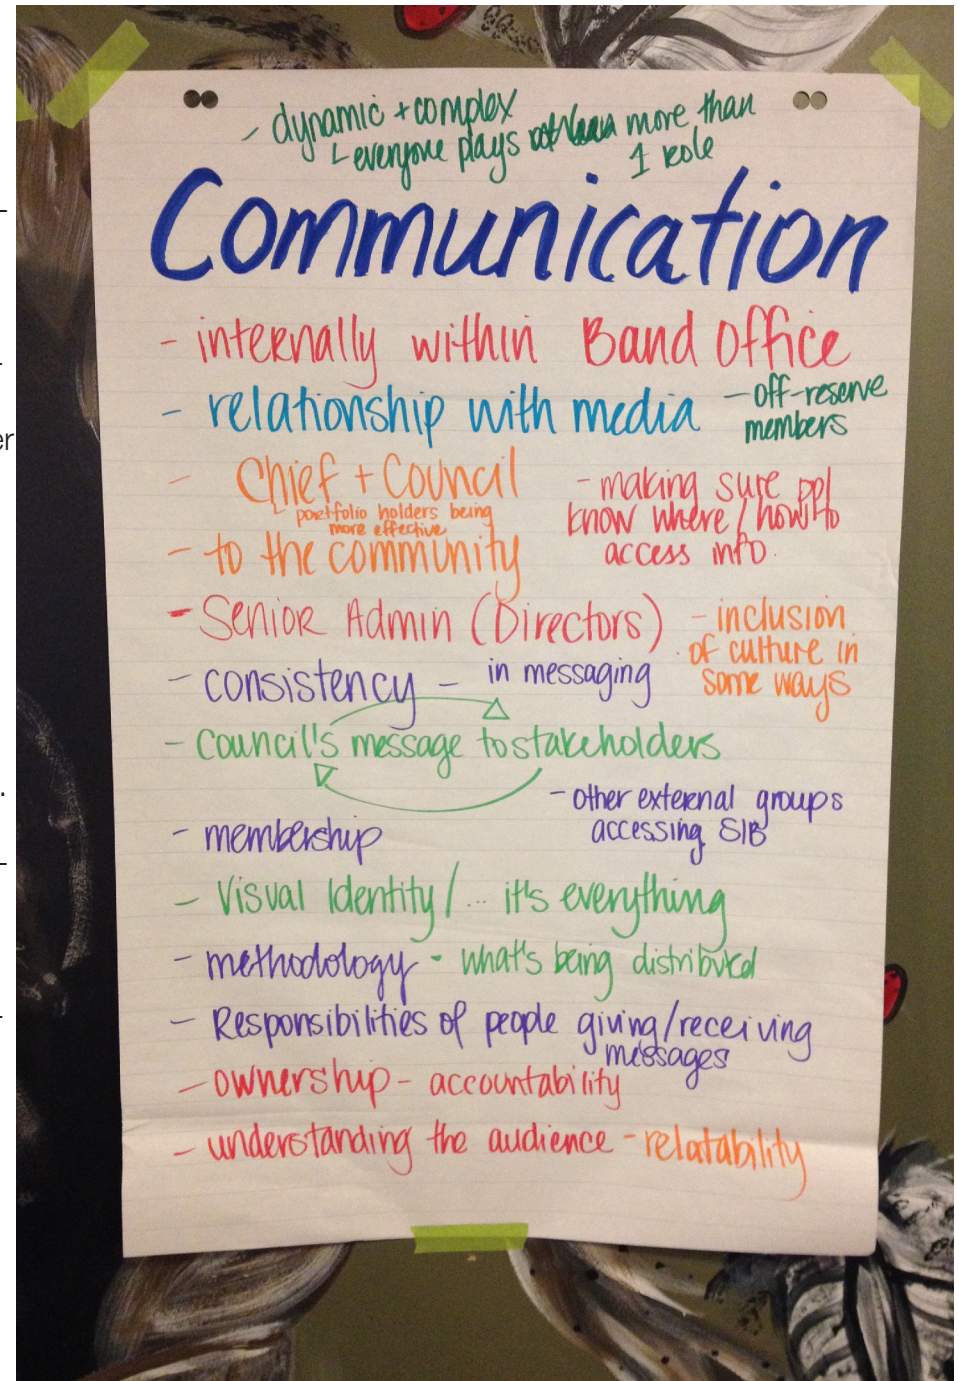 - dynamic + complex
└ everyone plays more than
1 role
Communication
- internally within Band Office
- relationship with media
- off-reserve
members
- Chief + Council
└ portfolio holders being
more effective
- making sure ppl
know where / how to
access info.
- to the community
- Senior Admin (Directors)
- inclusion
of culture in
some ways
- consistency - in messaging
- Council's message to stakeholders
- other external groups
accessing SIB
- membership
- Visual Identity / ... it's everything
- methodology - what's being distributed
- Responsibilities of people giving/receiving
messages
- ownership - accountability
- understanding the audience - relatability
er